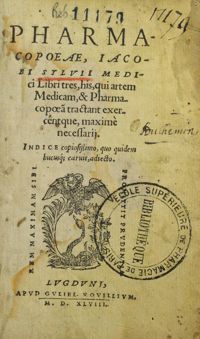 11179
11179
PHARMA-
COPOEAE, IACO-
BI SYLVII MEDI-
ci Libri tres, his, qui artem
Medicam, & Pharma-
copœā tractant exer-
centque, maximè
necessarij.
INDICE copiosissimo, quo quidem
hucusq; caruit, adiecto.
REM MAXIMAM SIBI
PROMITTIT PRUDENTIA
ECOLE SUPERIEURE DE PHARMACIE DE PARIS
BIBLIOTHEQUE
LVGDVNI,
APVD GVLIEL. ROVILLIVM,
M. D. XLVIII.